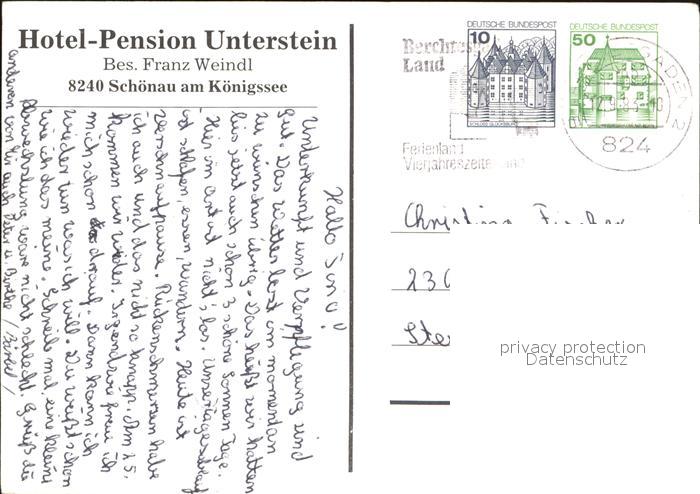 Hotel-Pension Unterstein
Bes. Franz Weindl
8240 Schönau am Königssee
Hallo Tina!
Unterkunft und Verpflegung sind
gut. Das Wetter lässt im momentan
zu wünschen übrig. Das heißt wir hatten
bis jetzt auch schon 3 schöne Sonnen Tage.
Hier im ort ist nicht's los. Unser Tagesablauf
ist schlafen, essen, wandern. Heute ist
verschnaufpause. Rückenschmerzen habe
ich auch und das nicht so knapp. Am 15.
kommen wir wieder. Irgendwie freu ich
mich schon drauf. Dann kann ich
wieder tun was ich will. Du weißt schon
wie ich das meine. Schreib mal, eine kleine
Abwechslung wäre nicht schlecht. Grüß die
anderen von mir auch Peter u. Birthe
DEUTSCHE BUNDESPOST
10
SCHLOSS GLÜCKSBURG
DEUTSCHE BUNDESPOST
50
Berchtes
Land
Ferienland
Vierjahreszeiten
GADEN 2
824
Christina
230
Ste
privacy protection
Datenschutz